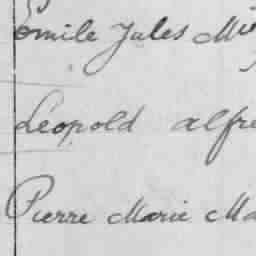 Emile Jules Mi
Leopold alfre
Pierre Marie Ma